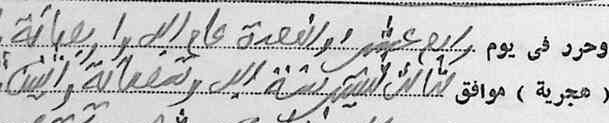 وحرر فى يوم رابع عشر ذو القعدة عام الف واربعمائة
( هجرية ) موافق لسنة الف وتسعمائة واثنين